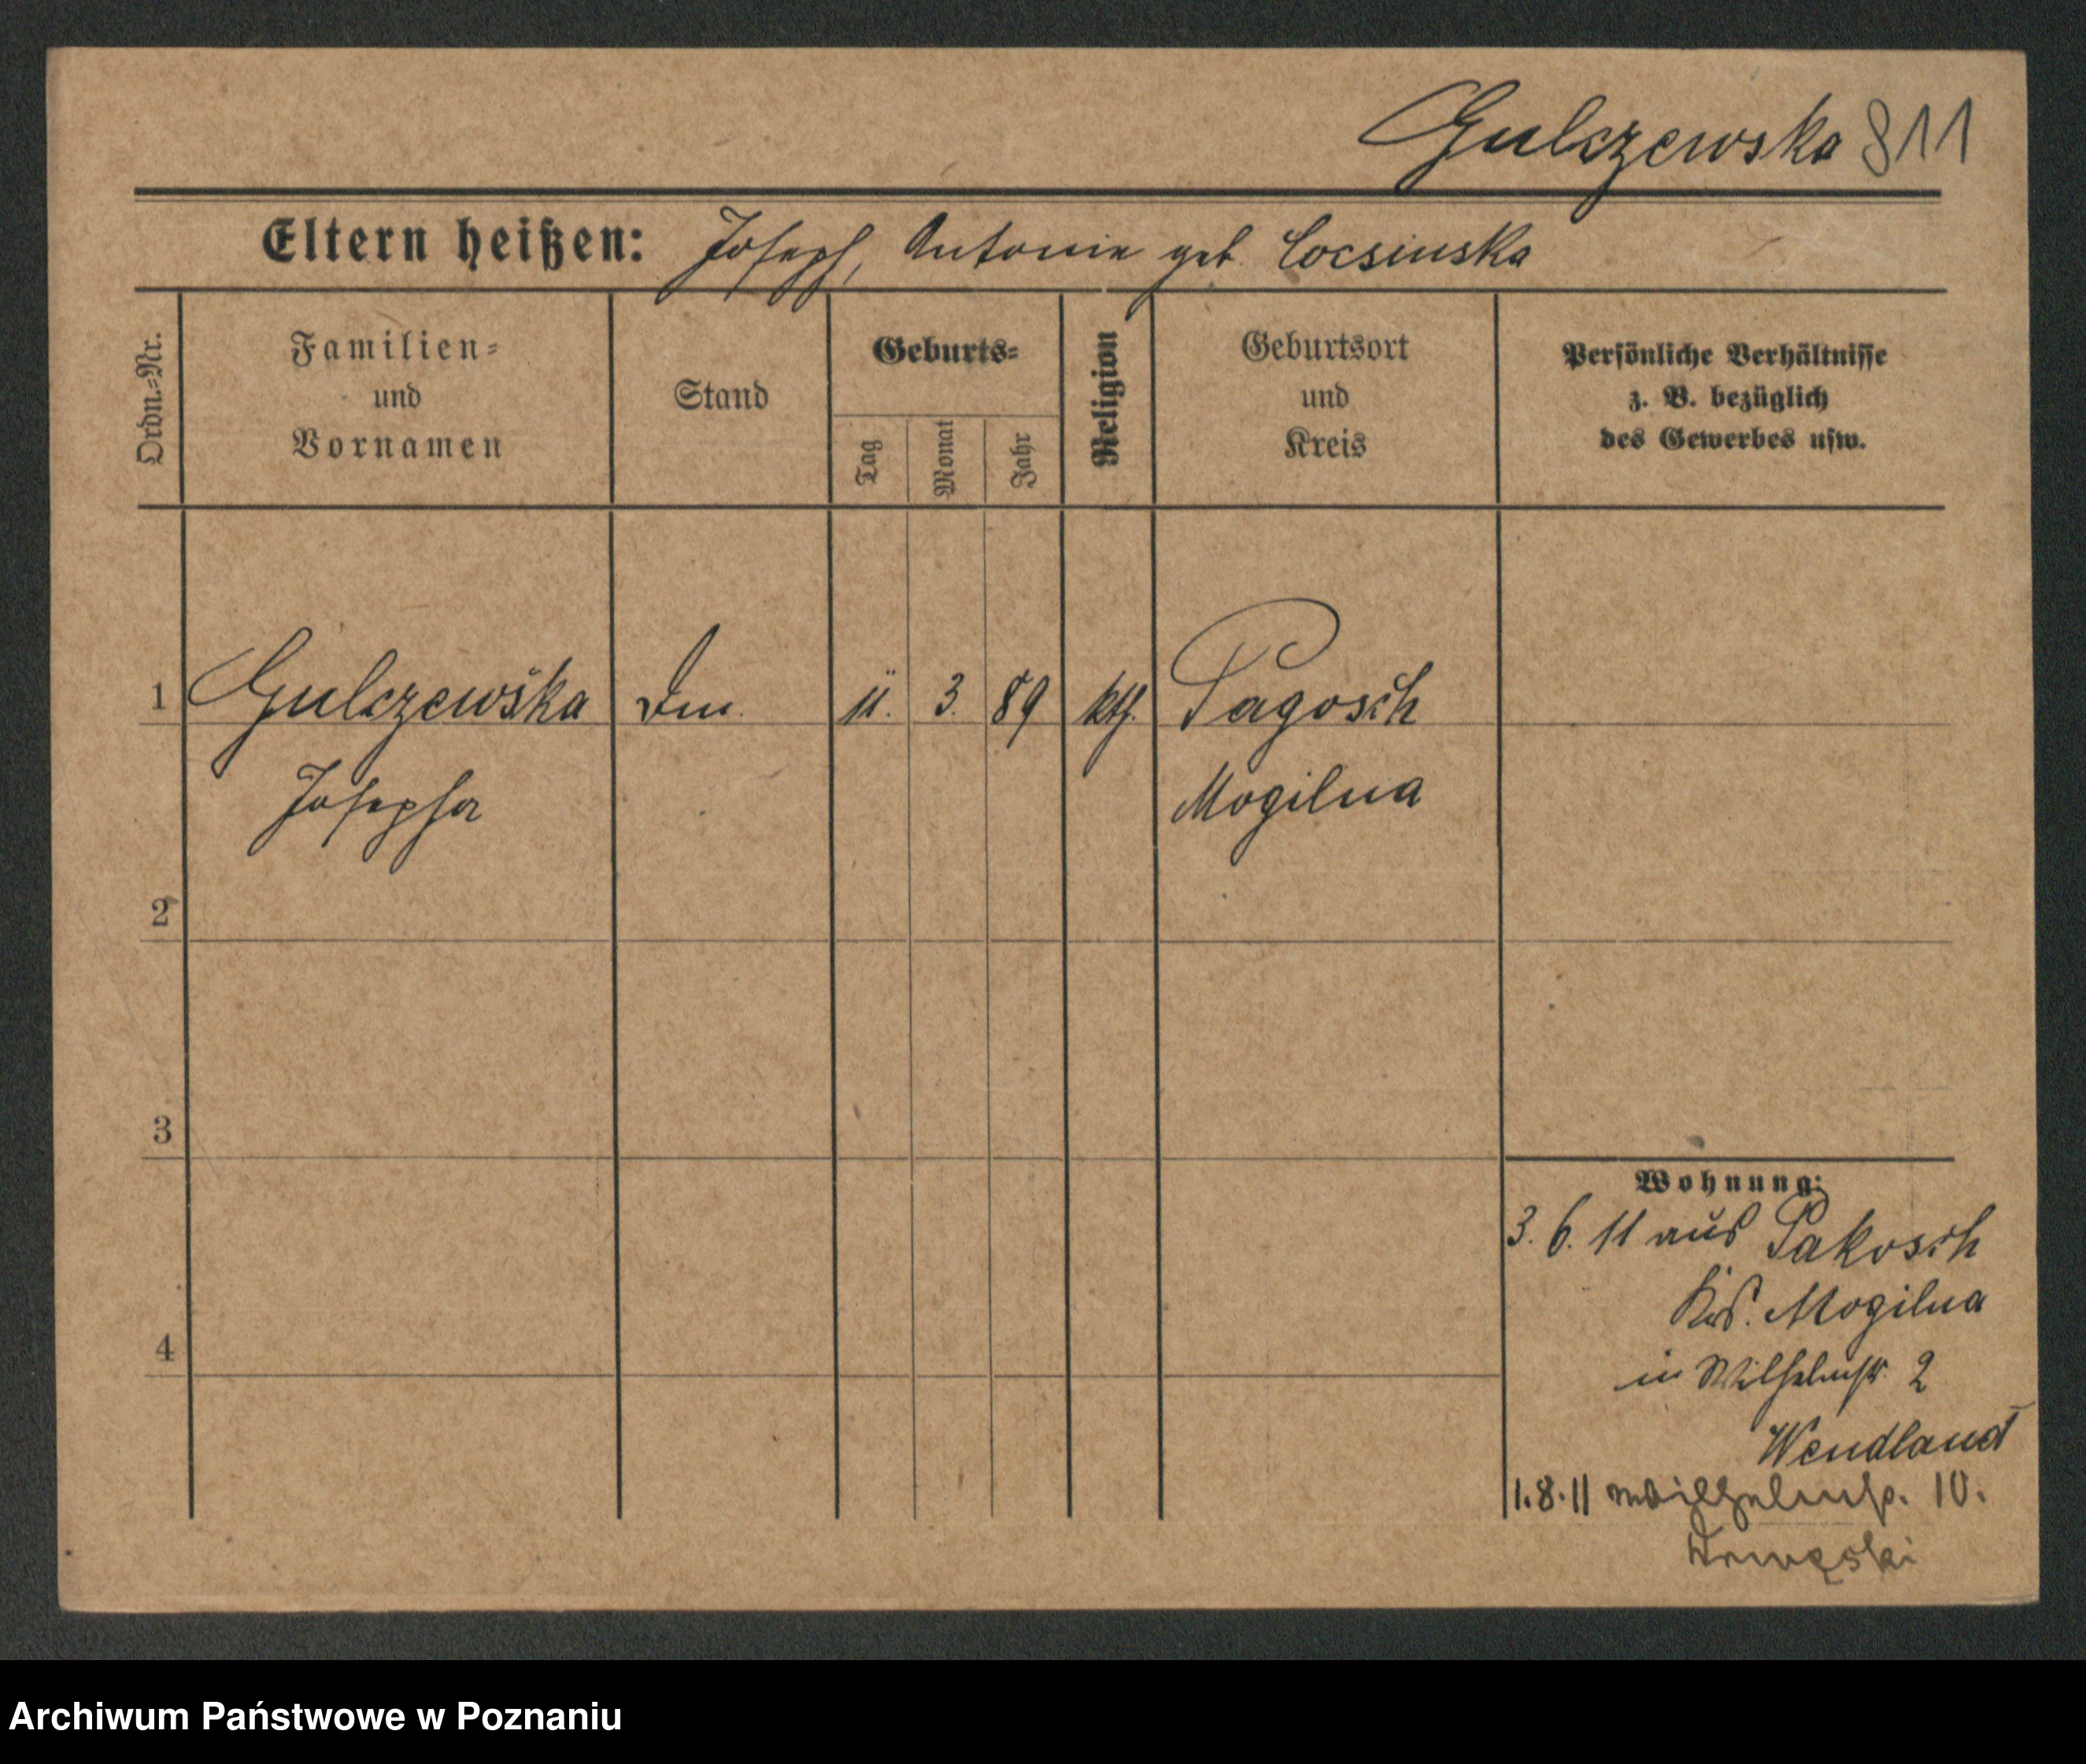 Gulczewska 811
Eltern heißen: Joseph, Antonie geb. Cocsinska
Ordn.=Nr.
Familien=
und
Vornamen
Stand
Geburts=
Tag
Monat
Jahr
Religion
Geburtsort
und
Kreis
Persönliche Verhältnisse
z. B. bezüglich
des Gewerbes usw.
1 Gulczewska 11. 3. 89 kth. Pagosch
Josepha Mogilna
2
3
4
Wohnung:
3. 6. 11 aus Pakosch
Krs. Mogilna
in Wilhelmstr. 2
Wendland
1.8.11 Wilhelmstr. 10.
Archiwum Państwowe w Poznaniu